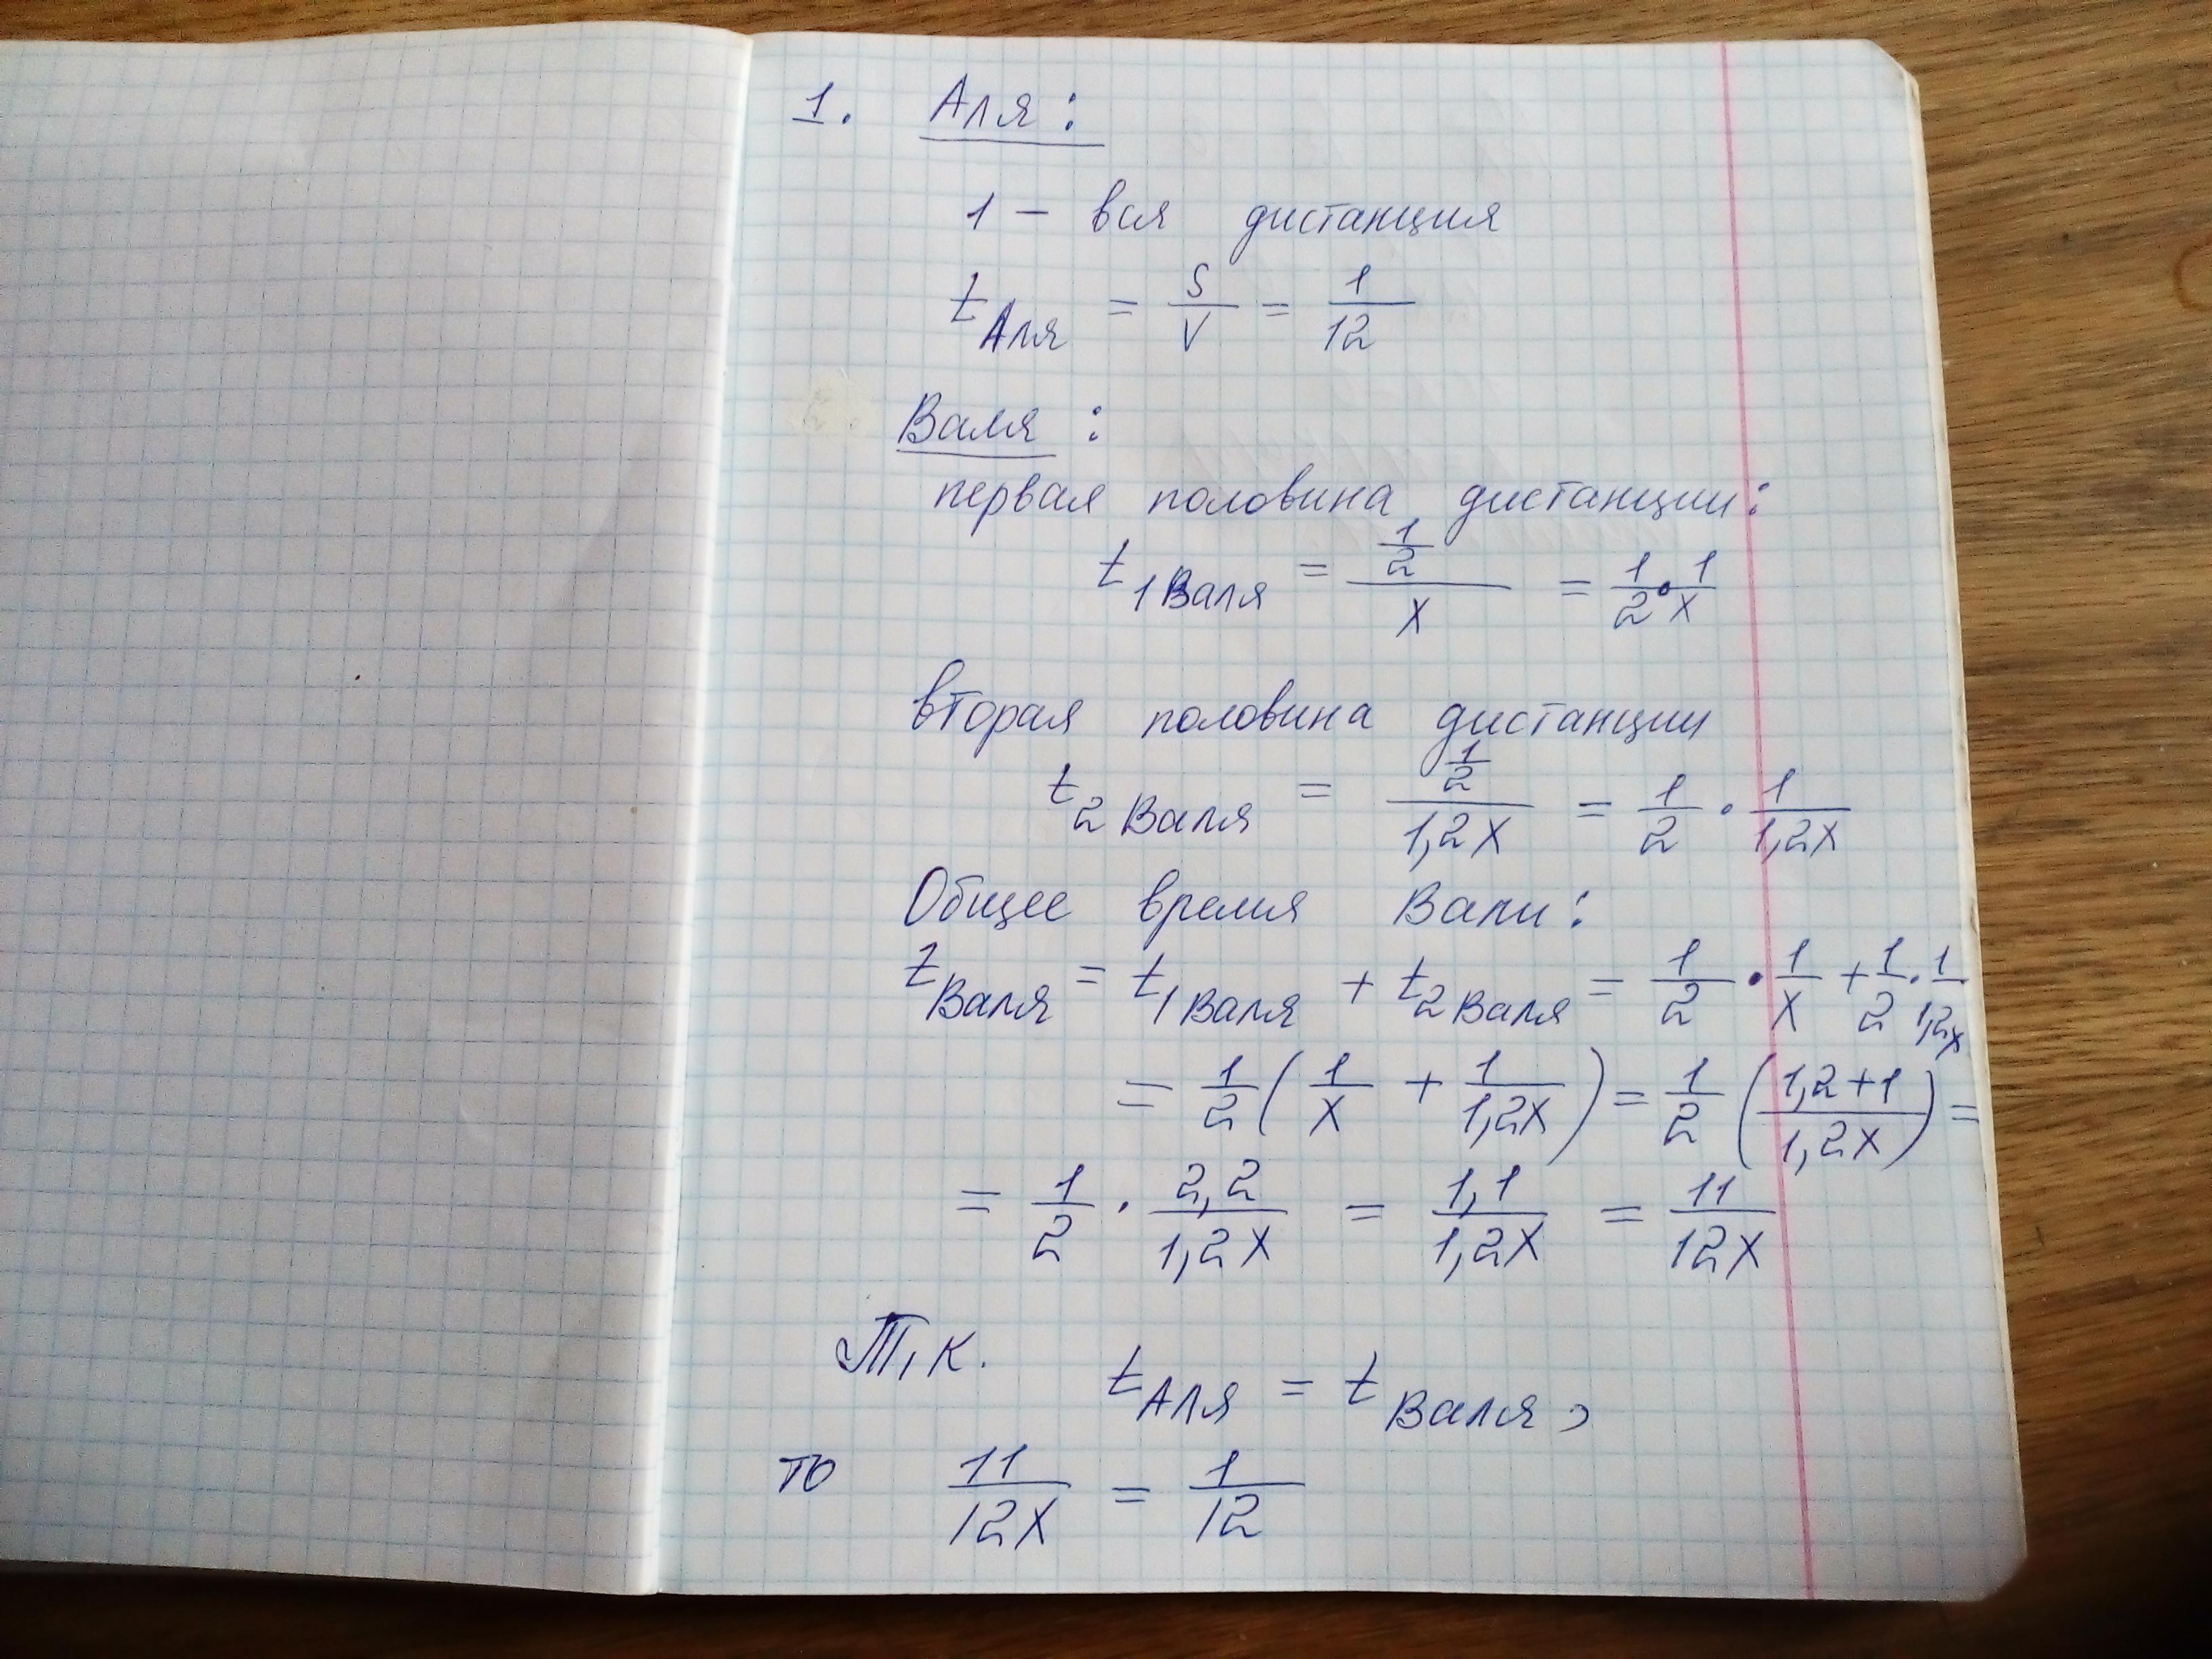 1. Аля:
1 – вся дистанция
t Аля = S/V = 1/12
Валя:
первая половина дистанции:
t 1 Валя = (1/2)/x = 1/2 · 1/x
вторая половина дистанции
t 2 Валя = (1/2)/(1,2x) = 1/2 · 1/(1,2x)
Общее время Вали:
t Валя = t 1 Валя + t 2 Валя = 1/2 · 1/x + 1/2 · 1/(1,2x)
= 1/2 (1/x + 1/(1,2x)) = 1/2 ((1,2+1)/(1,2x)) =
= 1/2 · 2,2/(1,2x) = 1,1/(1,2x) = 11/(12x)
Т.к. t Аля = t Валя,
то 11/(12x) = 1/12